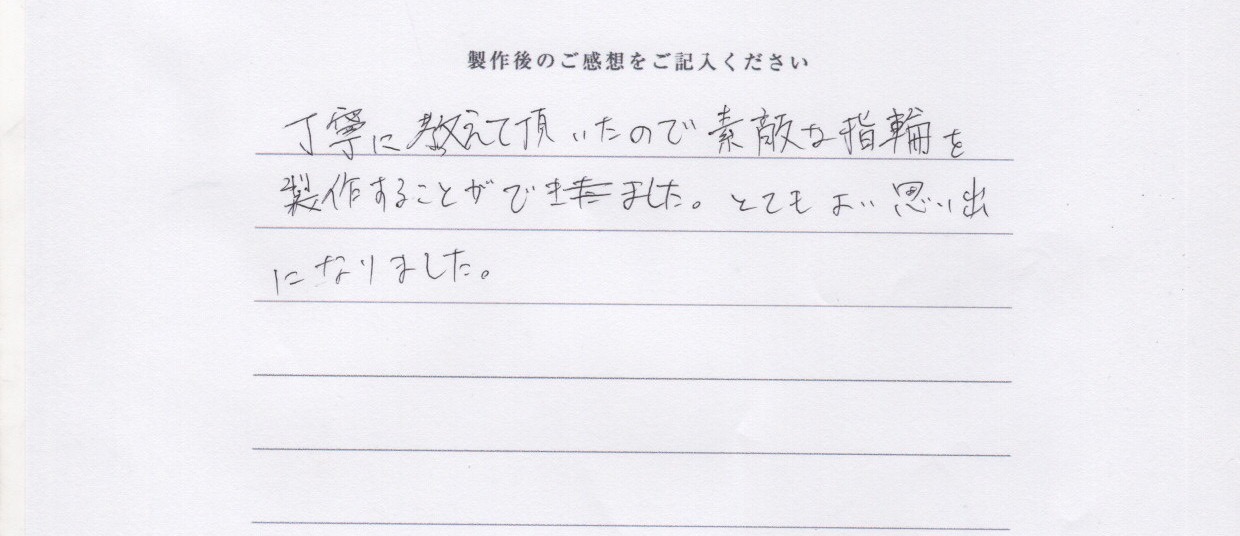 製作後のご感想をご記入ください
丁寧に教えて頂いたので素敵な指輪を
製作することができました。とてもよい思い出
になりました。